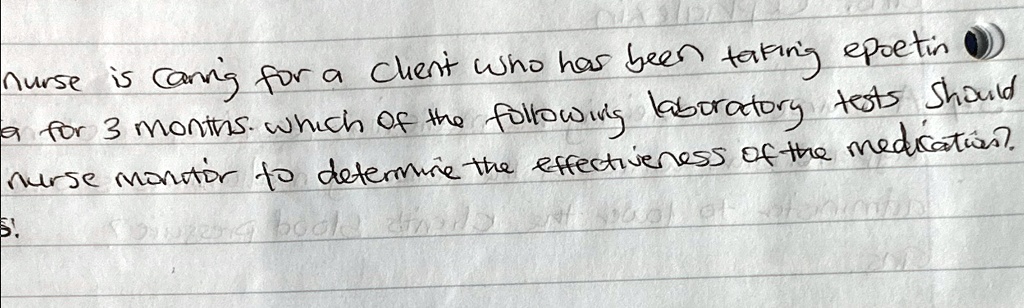 nurse is caring for a client who has been taking epoetin
a for 3 months. which of the following laboratory tests should
nurse monitor to determine the effectiveness of the medication?
s: